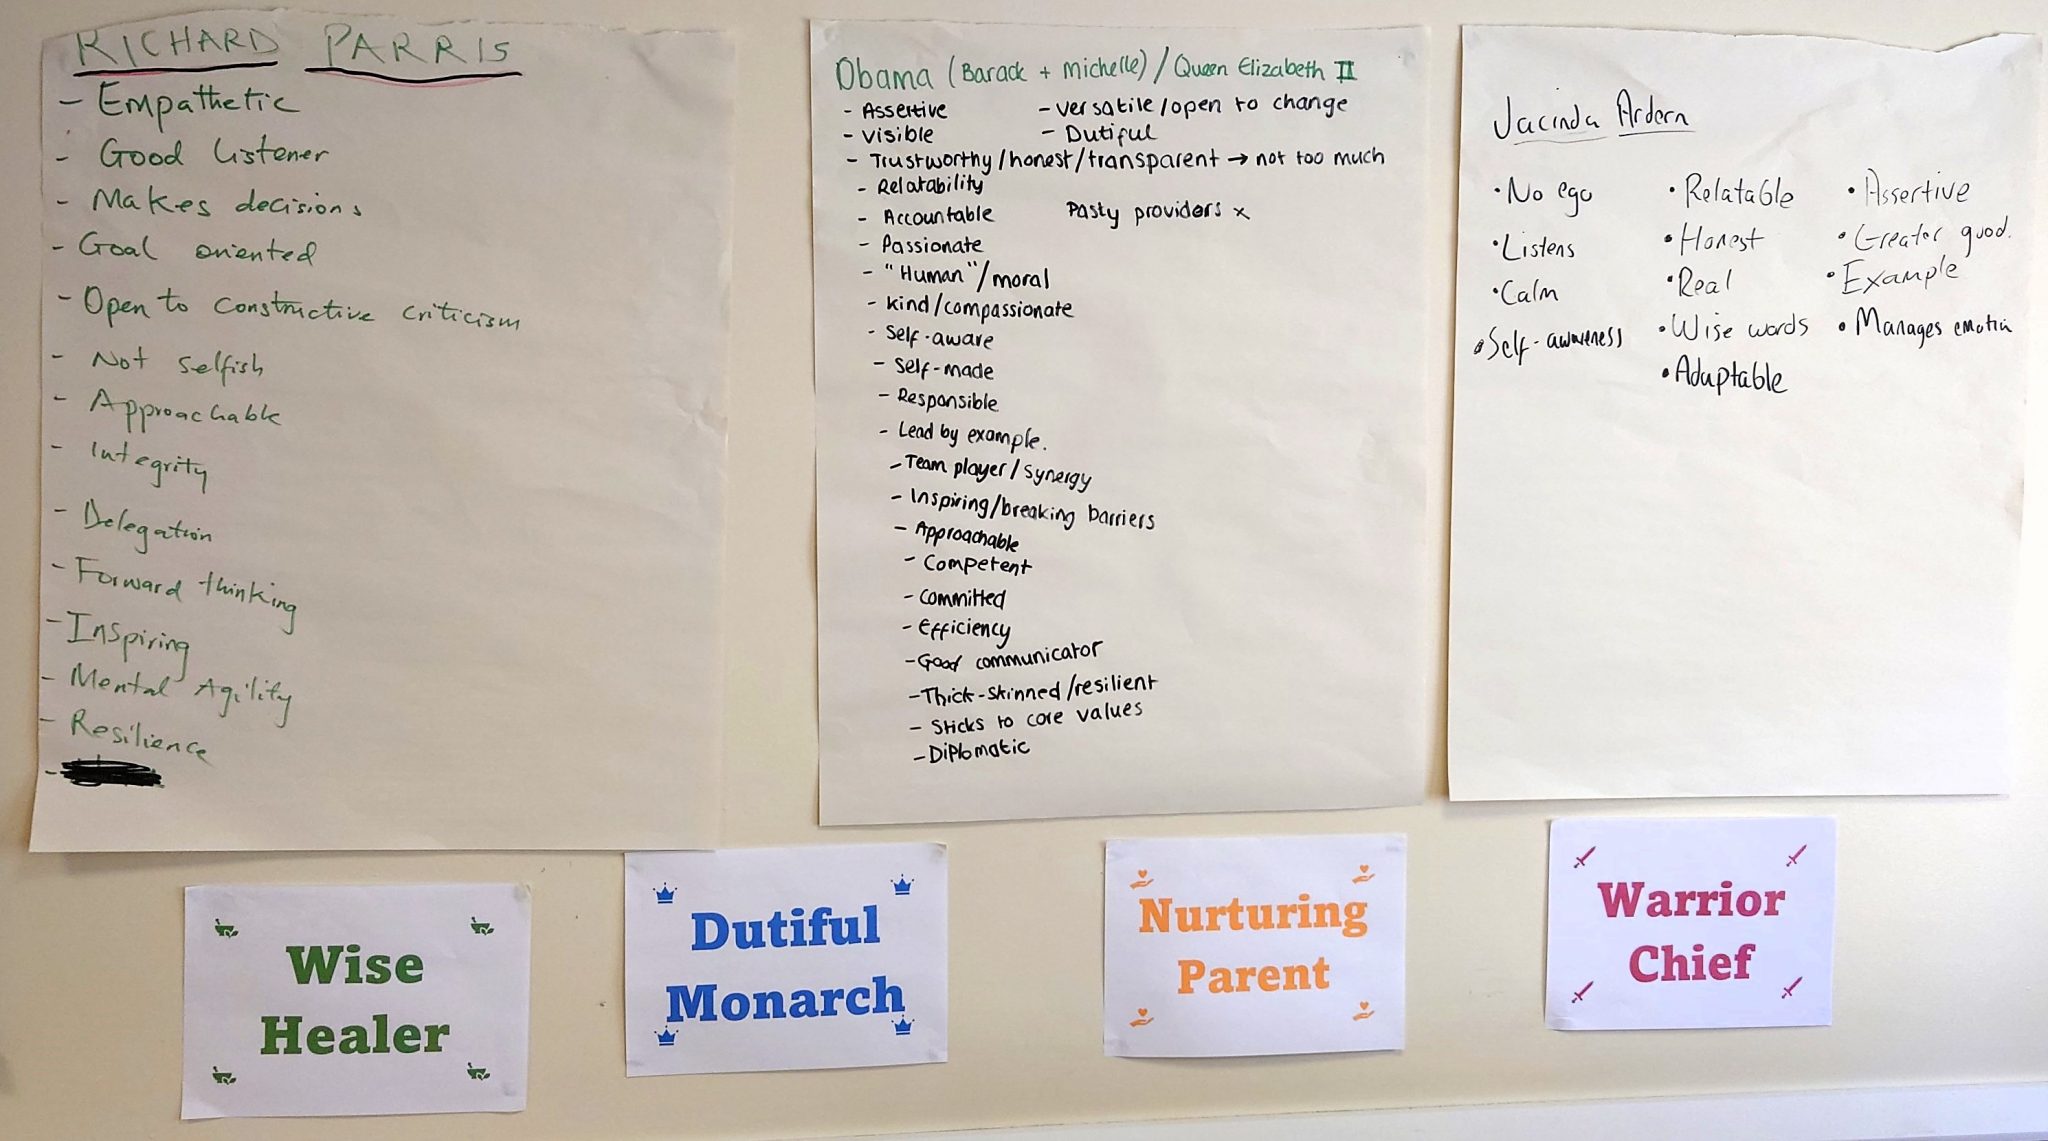 RICHARD PARRIS
- Empathetic
- Good Listener
- Makes decisions
- Goal oriented
- Open to constructive criticism
- Not selfish
- Approachable
- Integrity
- Delegation
- Forward thinking
- Inspiring
- Mental Agility
- Resilience
-
Obama (Barack + Michelle) / Queen Elizabeth II
- Assertive - versatile/open to change
- Visible - Dutiful
- Trustworthy/honest/transparent → not too much
- Relatability
- Accountable Pasty providers x
- Passionate
- "Human"/moral
- kind/compassionate
- Self-aware
- Self-made
- Responsible
- Lead by example.
- Team player/synergy
- Inspiring/breaking barriers
- Approachable
- Competent
- Committed
- Efficiency
- Good communicator
- Thick-skinned/resilient
- Sticks to core values
- Diplomatic
Jacinda Ardern
• No ego
• Listens
• Calm
• Self-awareness
• Relatable
• Honest
• Real
• Wise words
• Adaptable
• Assertive
• Greater good.
• Example
• Manages emotion
Wise
Healer
Dutiful
Monarch
Nurturing
Parent
Warrior
Chief